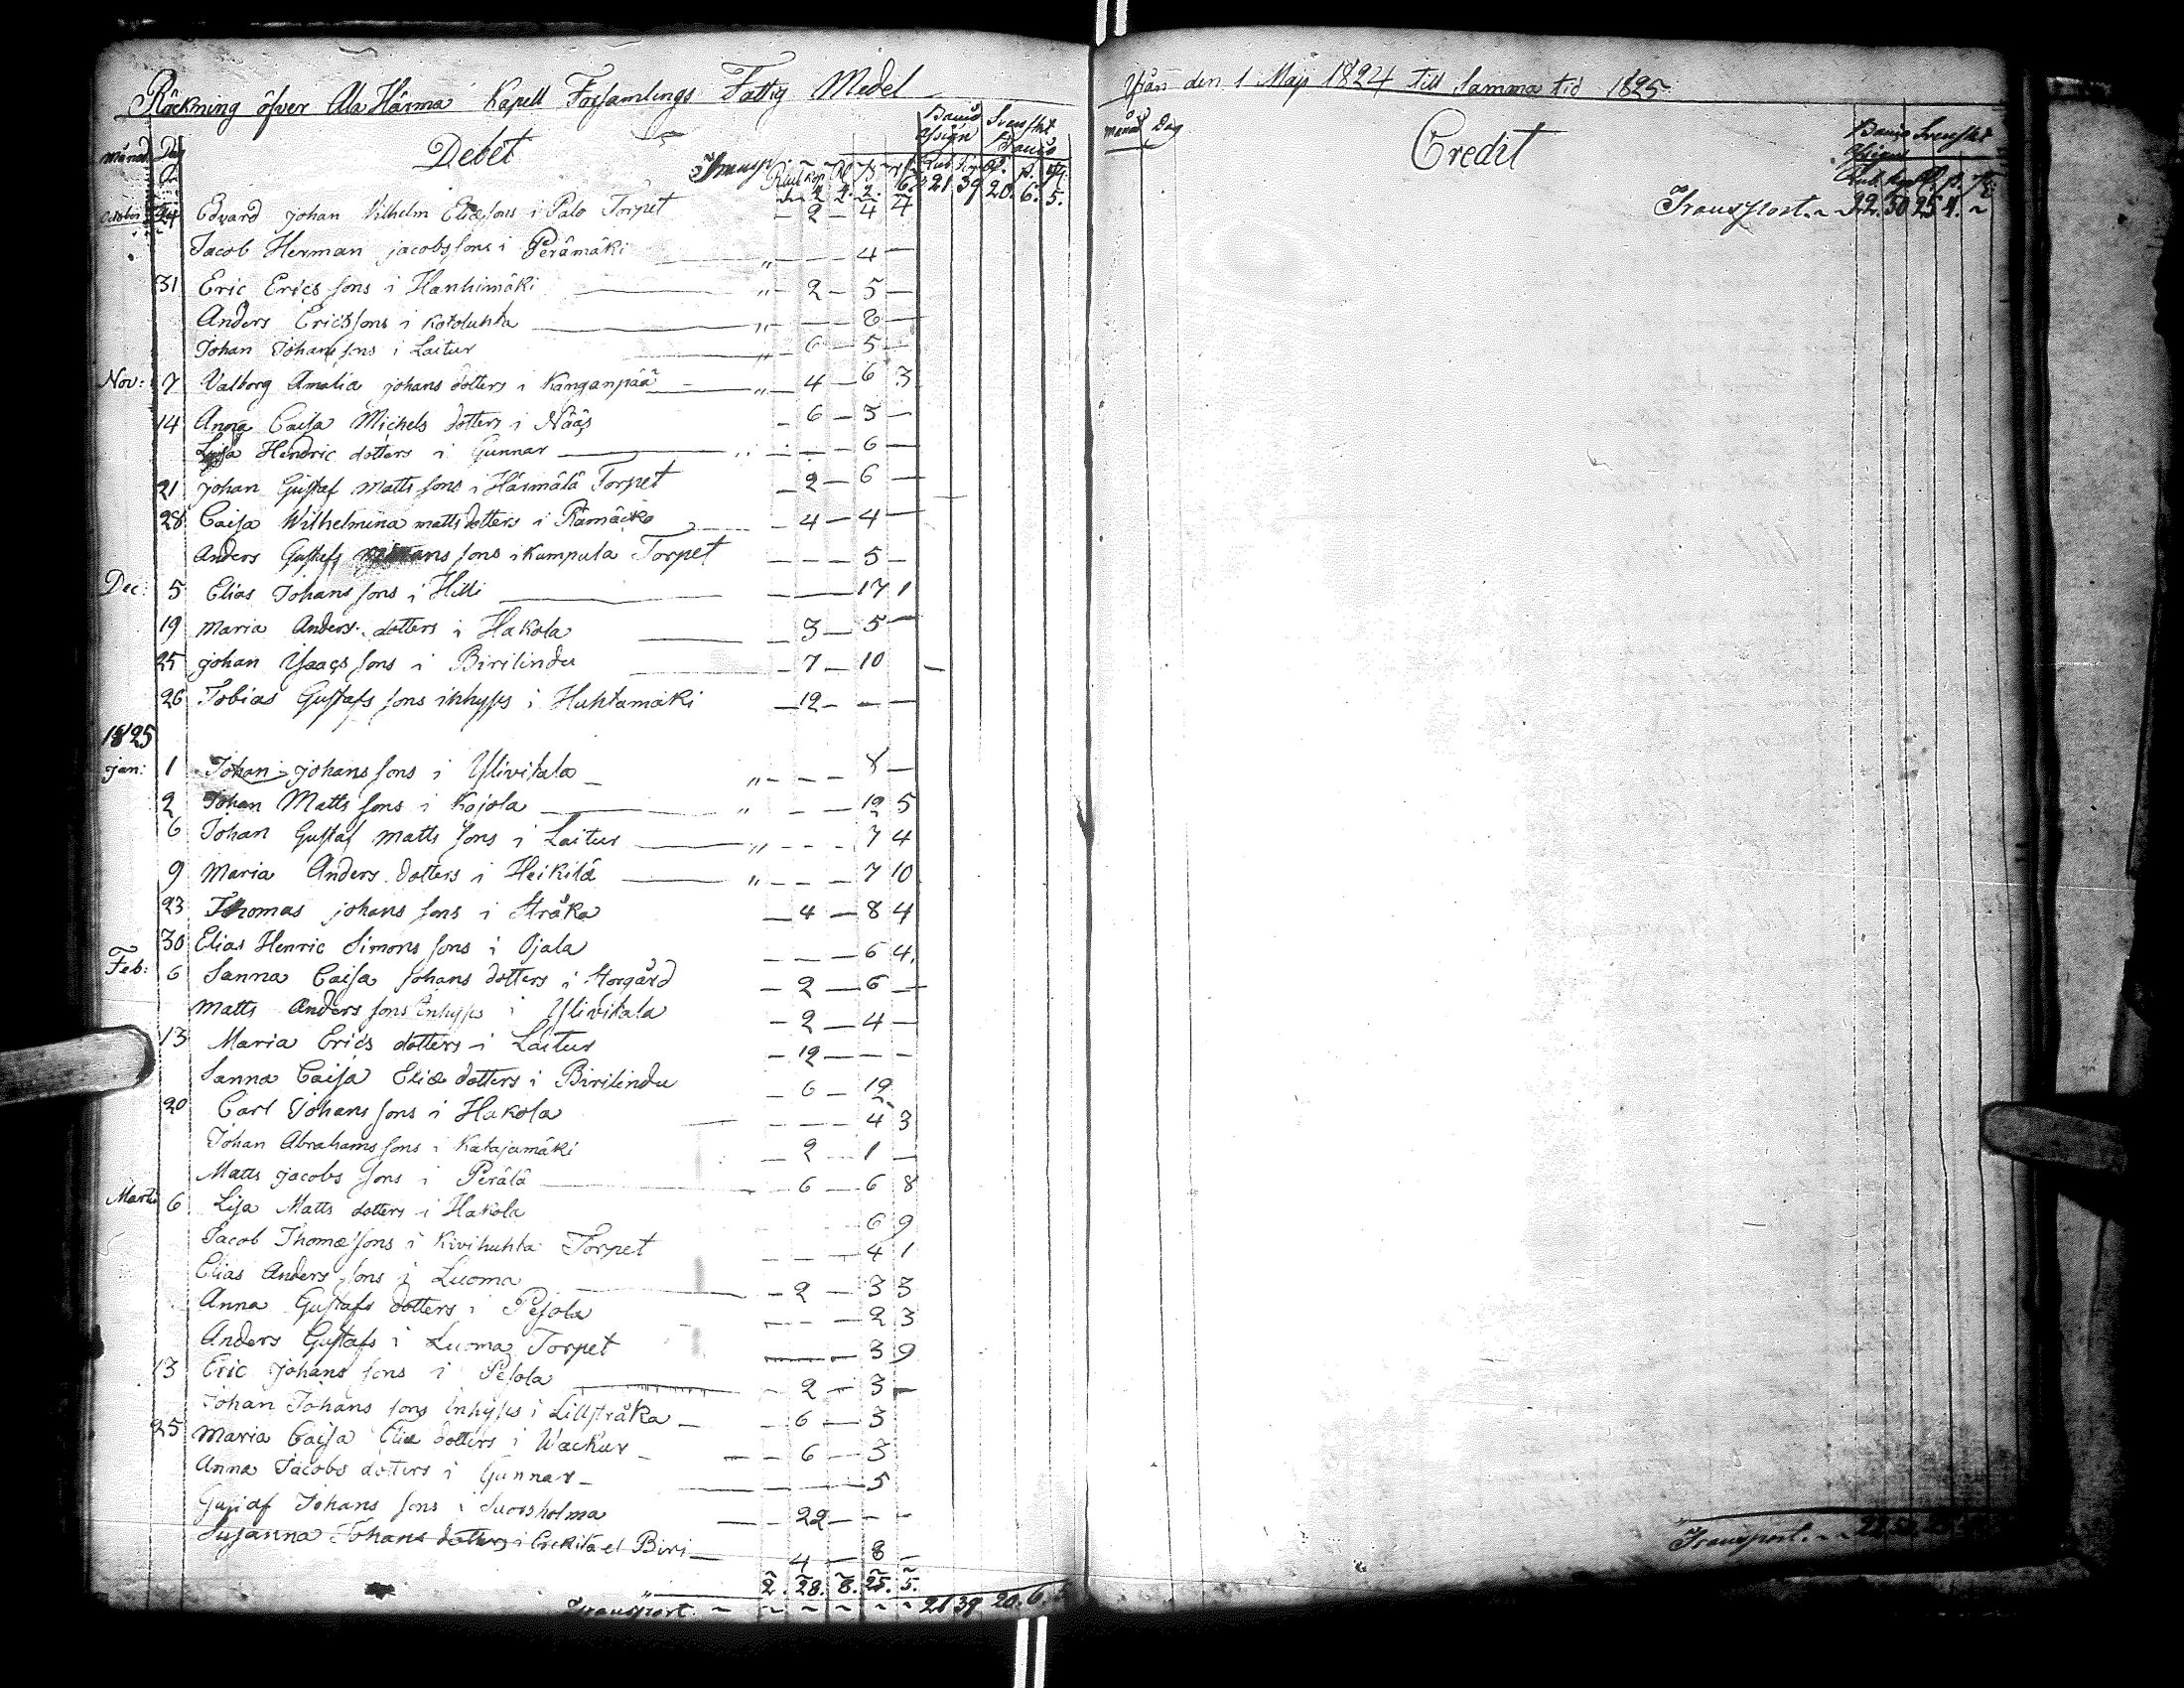 Räckning öfver Ala Härma Kapell Församlings Fattig Medel
Månad Dag Debet Banco Assign Svenskt Banco
Transp Rub kop R β rst Rub Kop R. β. rst
21 39 20. 6. 5.
October 24 Edvard Johan Vilhelm Eliæ sons i Palo Torpet — 2 — 4 4
Jacob Herman jacobs sons i Perämäki „ — — — 4 —
31 Eric Erics sons i Hanhimäki „ — 2 — 5 —
Anders Ericssons i Kotoluhta „ — — — 8 —
Johan Johans sons i Laitur „ — 6 — 5 —
Nov: 7 Valborg Amalia johans dotters i Kanganpää „ — 4 — 6 3
14 Anna Caisa Michels dotters i Nääs — 6 — 3 —
Lisa Hendric dotters i Gunnar — — — 6 —
21 johan Gustaf matts sons i Härmälä Torpet — 2 — 6 —
28 Caisa Wilhelmina matts dotters i Rämäcko — 4 — 4 —
Anders Gustafs sons i Kumpula Torpet — — — 5 —
Dec: 5 Elias Johans sons i Hilli — — 17 1
19 Maria Anders dotters i Hakola — 3 — 5 —
25 johan Isaacs sons i Birilindu — 7 — 10
26 Tobias Gustafs sons inhyses i Huhtamäki — 12 — — —
1825
jan: 1 Johan johans sons i Ylivitala „ — — — 8 —
2 Johan Matts sons i Kojola „ — — 12 5
6 Johan Gustaf matts sons i Laitur „ — — — 7 4
9 Maria Anders dotters i Heikilä „ — — — 7 10
23 Thomas johans sons i Stråka — 4 — 8 4
30 Elias Henric Simons sons i Ojala — — — 6 4.
Feb: 6 Sanna Caisa Johans dotters i Storgård — 2 — 6 —
Matts Anders sons Inhyses i Ylivitala — 2 — 4 —
13 Maria Erics dotters i Laitur — 12 — — —
Sanna Caisa Eliæ dotters i Birilindu — 6 — 12
20 Carl Johans sons i Hakola — — — 4 3
Johan Abrahams sons i Katajamäki — 2 — 1 —
Matts jacobs sons i Perälä — 6 — 6 8
Martii 6 Lisa Matts dotters i Hakola 6 9
Jacob Thomæ sons i Kivihuhta Torpet — — — 4 1
Elias Anders sons i Luoma — 2 — 3 3
Anna Gustafs dotters i Pesola — — — 2 3
Anders Gustafs i Luoma Torpet — — 3 9
13 Eric johans sons i Pesola — 2 — 3 —
Johan Johans sons inhyses i Lillstråka — — 6 — 3
25 Maria Caisa Eliæ dotters i Wackur — — — 6 — 3
Anna Jacobs dotters i Gunnar — — — — — 5
Gustaf Johans sons i Suorsholma — — 22 — — —
Susanna Johans dotters i Erckilä el Biri — 4 — 8 —
„ 2. 28. 8. 25. 5.
Transport. — 21 39 20. 6.
Ifrån den 1 Maji 1824 till samma tid 1825.
månad Dag Credit Banco Assign Svenskt
Transport. 22. 50 25 4. ~
Transport. ~